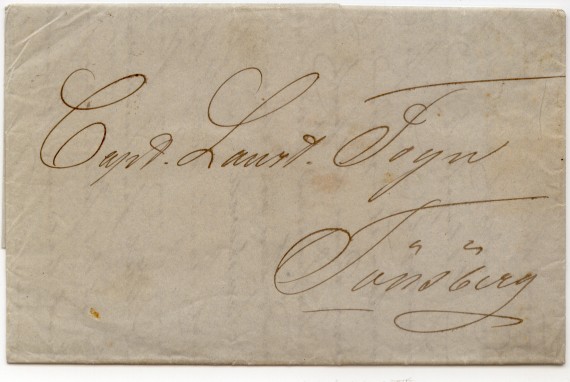 Capt. Laurd. Foyn
Tönsberg